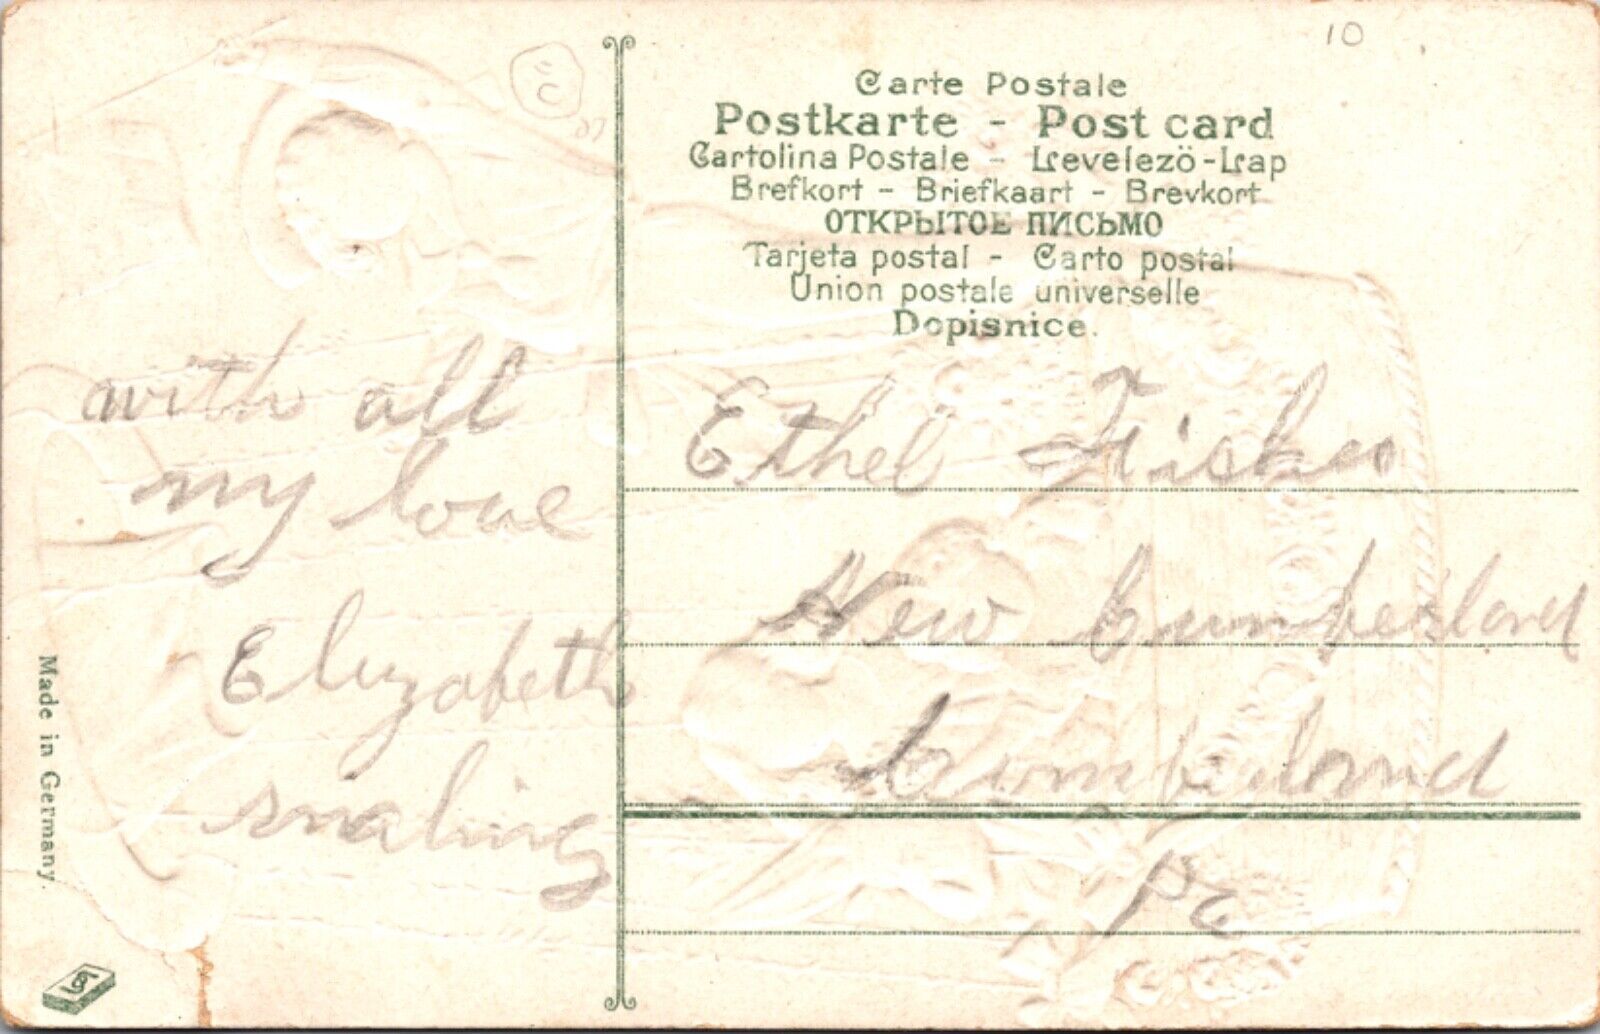 10
Carte Postale
Postkarte - Post card
Cartolina Postale - Levelező-Lap
Brefkort - Briefkaart - Brevkort
ОТКРЫТОЕ ПИСЬМО
Tarjeta postal - Carto postal
Union postale universelle
Dopisnice.
with all
my love
Elizabeth
smaling
Ethel Fisher
New Cumberland
Cumberland
Pa
Made in Germany.